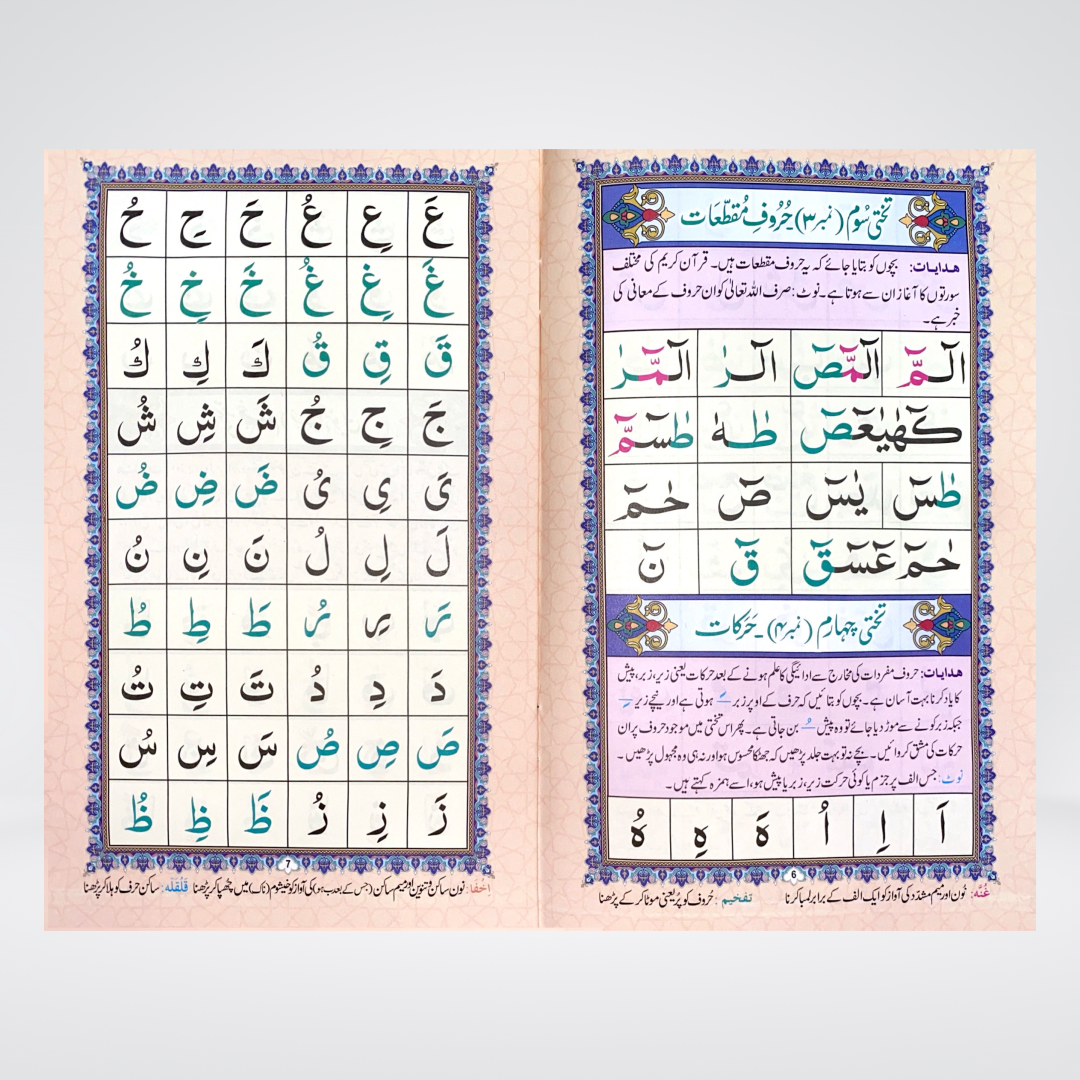 تختی سُوم (نمبر ۳)۔ حُرُوفِ مُقطّعَات
ہدایات: بچوں کو بتایا جائے کہ یہ حروف مقطعات ہیں۔ قرآن کریم کی مختلف
سورتوں کا آغاز ان سے ہوتا ہے۔ نوٹ: صرف اللہ تعالیٰ کو ان حروف کے معانی کی
خبر ہے۔
الٓـمّٓ الٓمّٓصٓ الٓـرٰ الٓـمّٓـرٰ
كٓهٰيٰعٓصٓ طٰـهٰ طٰسٓـمّٓ
طٰسٓ يٰسٓ صٓ حٰمٓ
حٰمٓ عٓسٓقٓ قٓ نٓ
تختی چہارم (نمبر ۴)۔ حَرَکات
ہدایات: حروف مفردات کی مخارج سے ادائیگی کا علم ہونے کے بعد حرکات یعنی زیر، زبر، پیش
کا یاد کرنا بہت آسان ہے۔ بچوں کو بتائیں کہ حرف کے اوپر زبر ـَ ہوتی ہے اور نیچے زیر ـِ
جبکہ زبر کو نے سے موڑ دیا جائے تو وہ پیش ـُ بن جاتی ہے۔ پھر اس تختی میں موجود حروف پر ان
حرکات کی مشق کروائیں۔ بچے نہ تو بہت جلد پڑھیں کہ جھٹکا محسوس ہو اور نہ ہی وہ مجہول پڑھیں۔
نوٹ: جس الف پر جزم یا کوئی حرکت زیر، زبر یا پیش ہو، اسے ہمزہ کہتے ہیں۔
اَ اِ اُ هَ هِ هُ
6
غُنّہ: نون اور میم مشدّد کی آواز کو ایک الف کے برابر لمبا کرنا تفخیم: حُروف کو پُر یعنی موٹا کر کے پڑھنا
عَ عِ عُ حَ حِ حُ
غَ غِ غُ خَ خِ خُ
قَ قِ قُ كَ كِ كُ
جَ جِ جُ شَ شِ شُ
یَ یِ یُ ضَ ضِ ضُ
لَ لِ لُ نَ نِ نُ
رَ رِ رُ طَ طِ طُ
دَ دِ دُ تَ تِ تُ
صَ صِ صُ سَ سِ سُ
زَ زِ زُ ظَ ظِ ظُ
7
اِخفَا: نون ساکن و تنوین اور میم ساکن (جس کے بعد ب ہو) کی آواز کو خیشوم (ناک) میں چُھپا کر پڑھنا قَلْقَلَہ: ساکن حرف کو ہلا کر پڑھنا